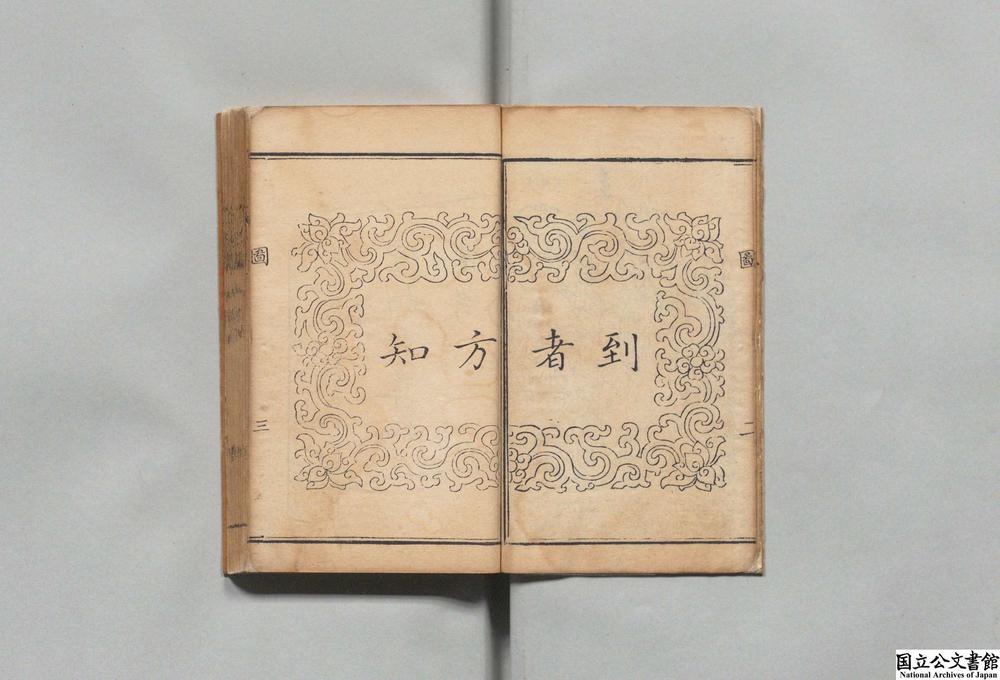 到者方知
圖
二
圖
三
国立公文書館
National Archives of Japan